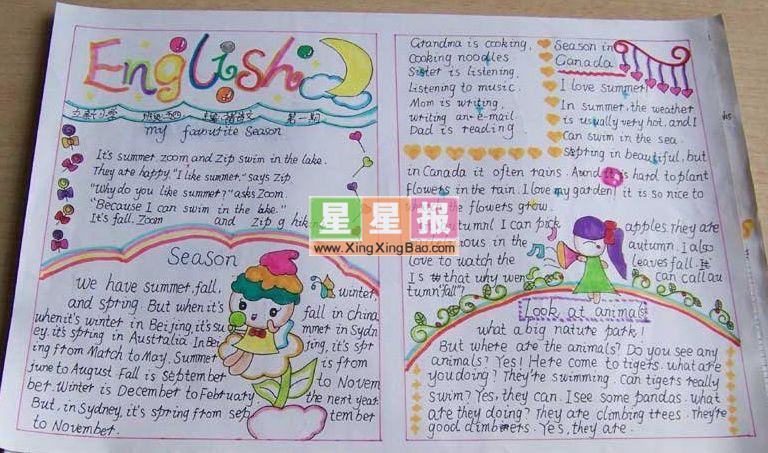 English
my favourite Season
It's summer. Zoom and Zip swim in the lake.
They are happy. "I like summer." says Zip.
"Why do you like summer?" asks Zoom.
"Because I can swim in the lake."
It's fall. Zoom and Zip g hik
Season
we have summer, fall, winter,
and spring. But when it's fall in china
when it's winter in Beijing, it's su mmer in Sydn
ey. it's spring in Australia In Bei jing, it's spr
ing from Match to May. Summer is from
June to August Fall is September to Novem
ber. Winter is December to February the next year.
But, in Sydney, it's spring from sep tember
to November.
Grandma is cooking,
cooking noodles
Sister is listening.
Listening to music.
Mom is writing.
writing an e-mail.
Dad is reading
Season in
Canada
I love summer!
In summer, the weather
is usually very hot, and I
can swim in the sea.
Spring in beautiful, but
in Canada it often rains. And it is hard to plant
flowers in the rain. I love my garden it is so nice to
the flowers grow.
I can pick apples. they are
in the autumn. I also
love to watch the leaves fall. It
Is that why we can call au
tumn "fall"?
Look at animals
what a big nature park!
But where are the animals? Do you see any
animals? Yes! Here come to tigers. what are
you doing? They're swimming. Can tigers really
swim? Yes, they can. I see some pandas. what
are they doing? They are climbing trees. They're
good climbers. Yes, they are.
星星报
www.XingXingBao.com